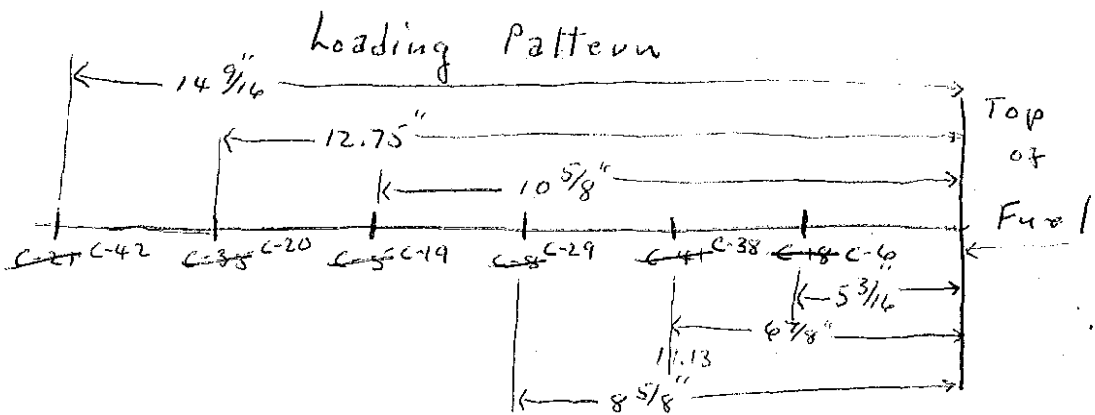 Loading Pattern
14 9/16"
12.75"
10 5/8"
Top
of
Fuel
C-21 C-42 C-35 C-20 C-5 C-19 C-8 C-29 C-41 C-38 C-18 C-6
5 3/16"
6 7/8"
11.13
8 5/8"